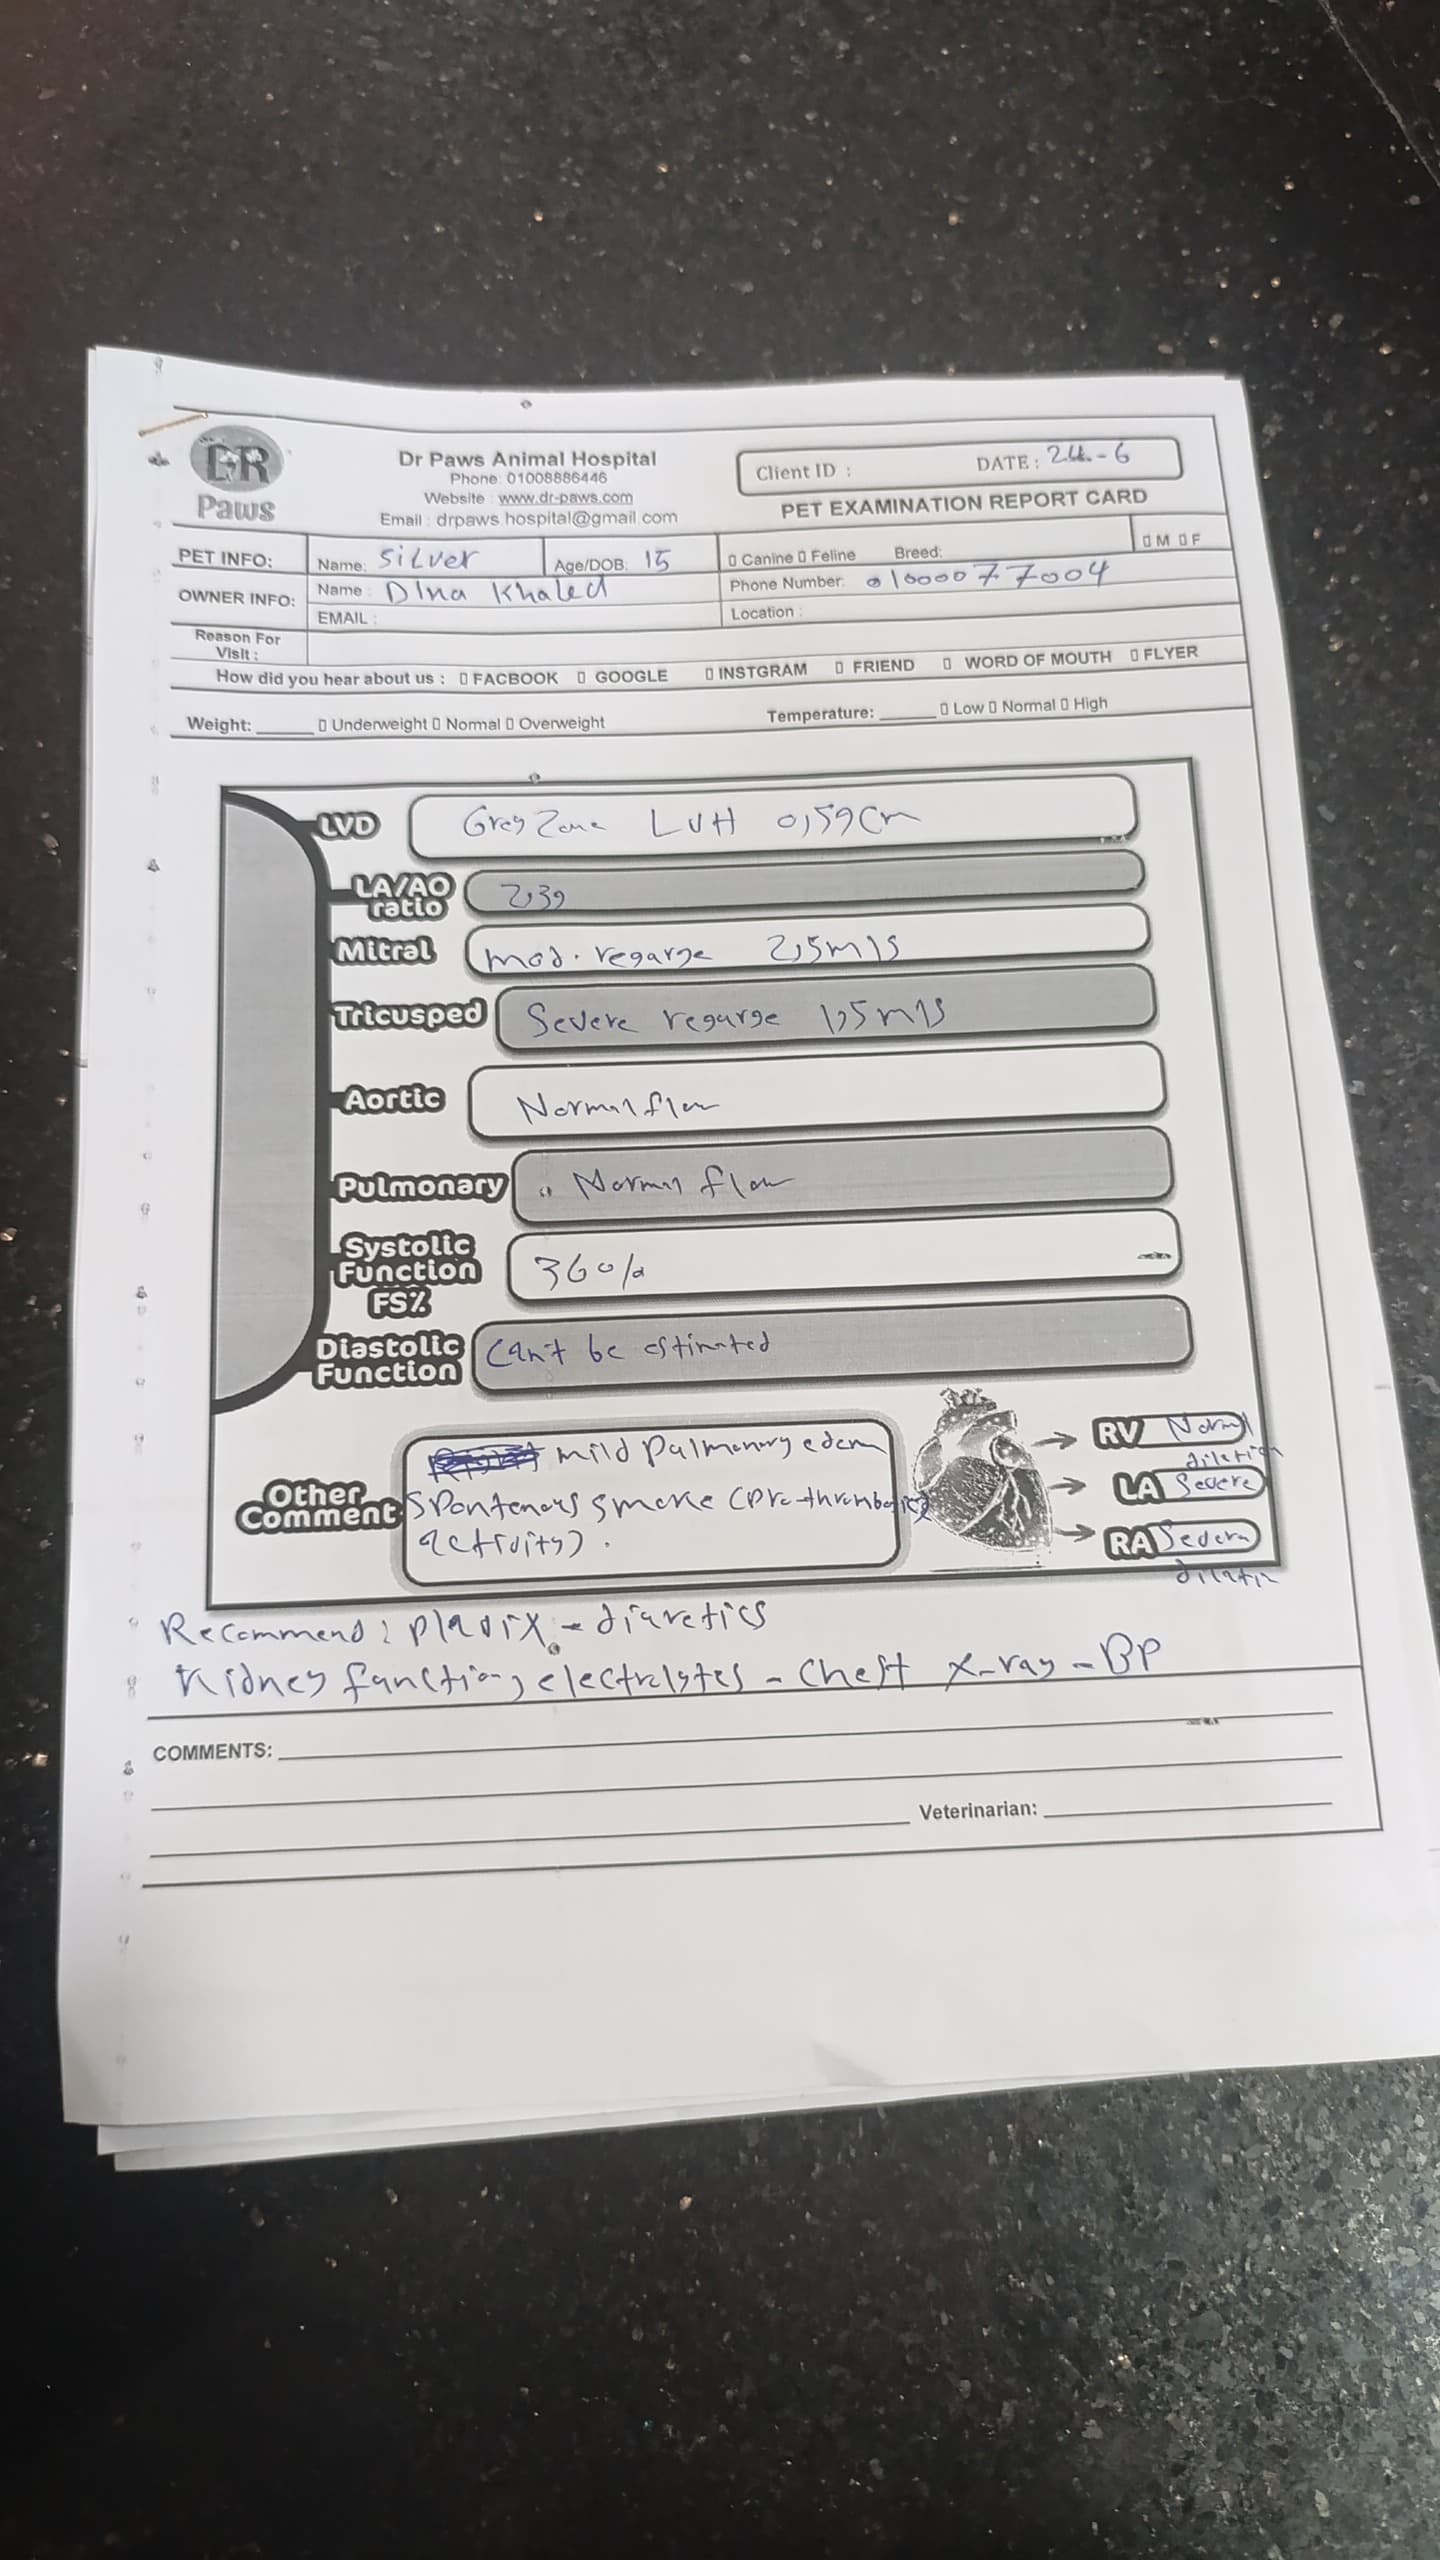 DR
Paws
Dr Paws Animal Hospital
Phone: 01008886446
Website : www.dr-paws.com
Email : drpaws.hospital@gmail.com
Client ID :
DATE: 24-6
PET EXAMINATION REPORT CARD
PET INFO: Name: Silver Age/DOB: 15 Canine Feline Breed: M F
OWNER INFO: Name: Dina Khaled Phone Number: 01000077004
EMAIL : Location :
Reason For
Visit :
How did you hear about us : FACBOOK GOOGLE INSTGRAM FRIEND WORD OF MOUTH FLYER
Weight: Underweight Normal Overweight Temperature: Low Normal High
LVD Grey Zone LVH 0,59 Cm
LA/AO
ratio 2,39
Mitral mod. regurge 2,5 m/s
Tricusped Severe regurge 1,5 m/s
Aortic Normal flow
Pulmonary Normal flow
Systolic
Function
FS% 36%
Diastolic
Function Can't be estimated
Other
Comment mild Pulmonary edem
Spontenous smoke (Pre-thrombotic
activity).
RV Normal
LA Severe dilation
RA Severe dilation
Recommend : plavix - diuretics
Kidney function, electrolytes - Chest X-ray - BP
COMMENTS:
Veterinarian: